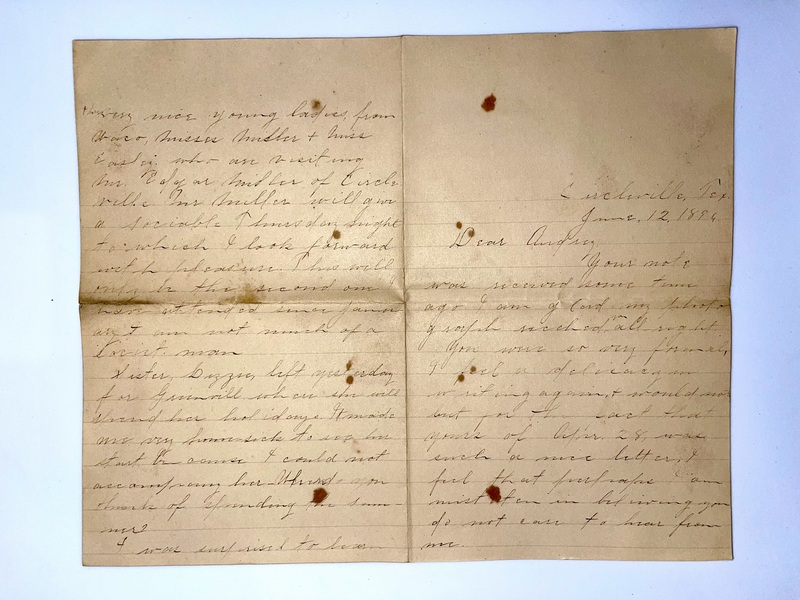 Circleville, Tex.
June, 12, 189
Dear Audrey
Your note
was received some time
ago I am glad my photo
graph reached all right
You were so very formal,
I feel a delicacy in
writing again, & would not
but for the fact that
yours of Apr. 28, was
such a nice letter. I
feel that perhaps I am
mistaken in believing you
do not care to hear from
me.
very nice young ladies, from
Waco, Misses Miller & Miss
who are visiting
Mr. Edgar Miller of Circle
ville Mr Miller will give
a sociable Thursday night
to which I look forward
with pleasure. This will
only be the second one
attended since
I am not much of a
man
Sister, Lizzie, left yesterday
for where she will
spend her holidays. It made
me very homesick to see her
start because I could not
accompany her Where do you
think of spending the sum-
mer?
I was surprised to learn